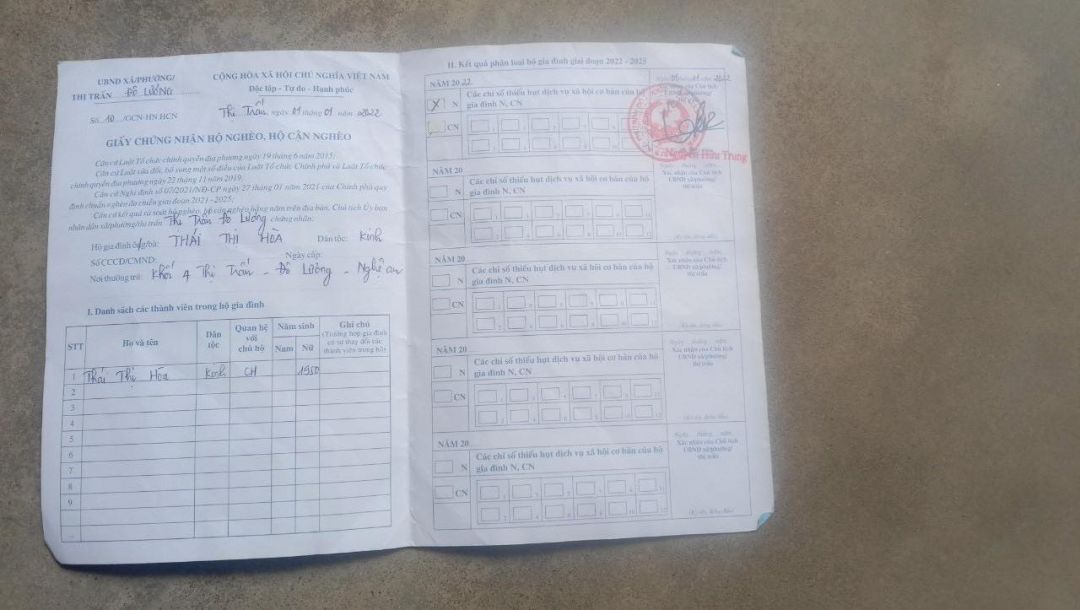 UBND XÃ/PHƯỜNG/
THỊ TRẤN ĐÔ LƯƠNG
CỘNG HÒA XÃ HỘI CHỦ NGHĨA VIỆT NAM
Độc lập - Tự do - Hạnh phúc
Số 10 /GCN-HN.HCN
Thị Trấn, ngày 01 tháng 01 năm 2022
GIẤY CHỨNG NHẬN HỘ NGHÈO, HỘ CẬN NGHÈO
Căn cứ Luật Tổ chức chính quyền địa phương ngày 19 tháng 6 năm 2015;
Căn cứ Luật sửa đổi, bổ sung một số điều của Luật Tổ chức Chính phủ và Luật Tổ chức
chính quyền địa phương ngày 22 tháng 11 năm 2019;
Căn cứ Nghị định số 07/2021/NĐ-CP ngày 27 tháng 01 năm 2021 của Chính phủ quy
định chuẩn nghèo đa chiều giai đoạn 2021 - 2025;
Căn cứ kết quả rà soát hộ nghèo, hộ cận nghèo hằng năm trên địa bàn, Chủ tịch Ủy ban
nhân dân xã/phường/thị trấn Thị Trấn Đô Lương chứng nhận:
Hộ gia đình ông/bà: THÁI THỊ HÒA Dân tộc: Kinh
Số CCCD/CMND: Ngày cấp:
Nơi thường trú: Khối 4 Thị Trấn - Đô Lương - Nghệ an
I. Danh sách các thành viên trong hộ gia đình
STT Họ và tên Dân tộc Quan hệ với chủ hộ Năm sinh Nam Nữ Ghi chú (Trường hợp gia đình có sự thay đổi các thành viên trong hộ)
1 Thái Thị Hòa Kinh CH 1950
2
3
4
5
6
7
8
9
II. Kết quả phân loại hộ gia đình giai đoạn 2022 - 2025
NĂM 2022
X N Các chỉ số thiếu hụt dịch vụ xã hội cơ bản của hộ
gia đình N, CN
CN
Nguyễn Hữu Trung
NĂM 20
N Các chỉ số thiếu hụt dịch vụ xã hội cơ bản của hộ
gia đình N, CN
CN
Ngày tháng năm
Xác nhận của Chủ tịch
UBND xã/phường/
thị trấn
NĂM 20
N Các chỉ số thiếu hụt dịch vụ xã hội cơ bản của hộ
gia đình N, CN
CN
Ngày tháng năm
Xác nhận của Chủ tịch
UBND xã/phường/
thị trấn
NĂM 20
N Các chỉ số thiếu hụt dịch vụ xã hội cơ bản của hộ
gia đình N, CN
CN
Ngày tháng năm
Xác nhận của Chủ tịch
UBND xã/phường/
thị trấn
NĂM 20
N Các chỉ số thiếu hụt dịch vụ xã hội cơ bản của hộ
gia đình N, CN
CN
Ngày tháng năm
Xác nhận của Chủ tịch
UBND xã/phường/
thị trấn